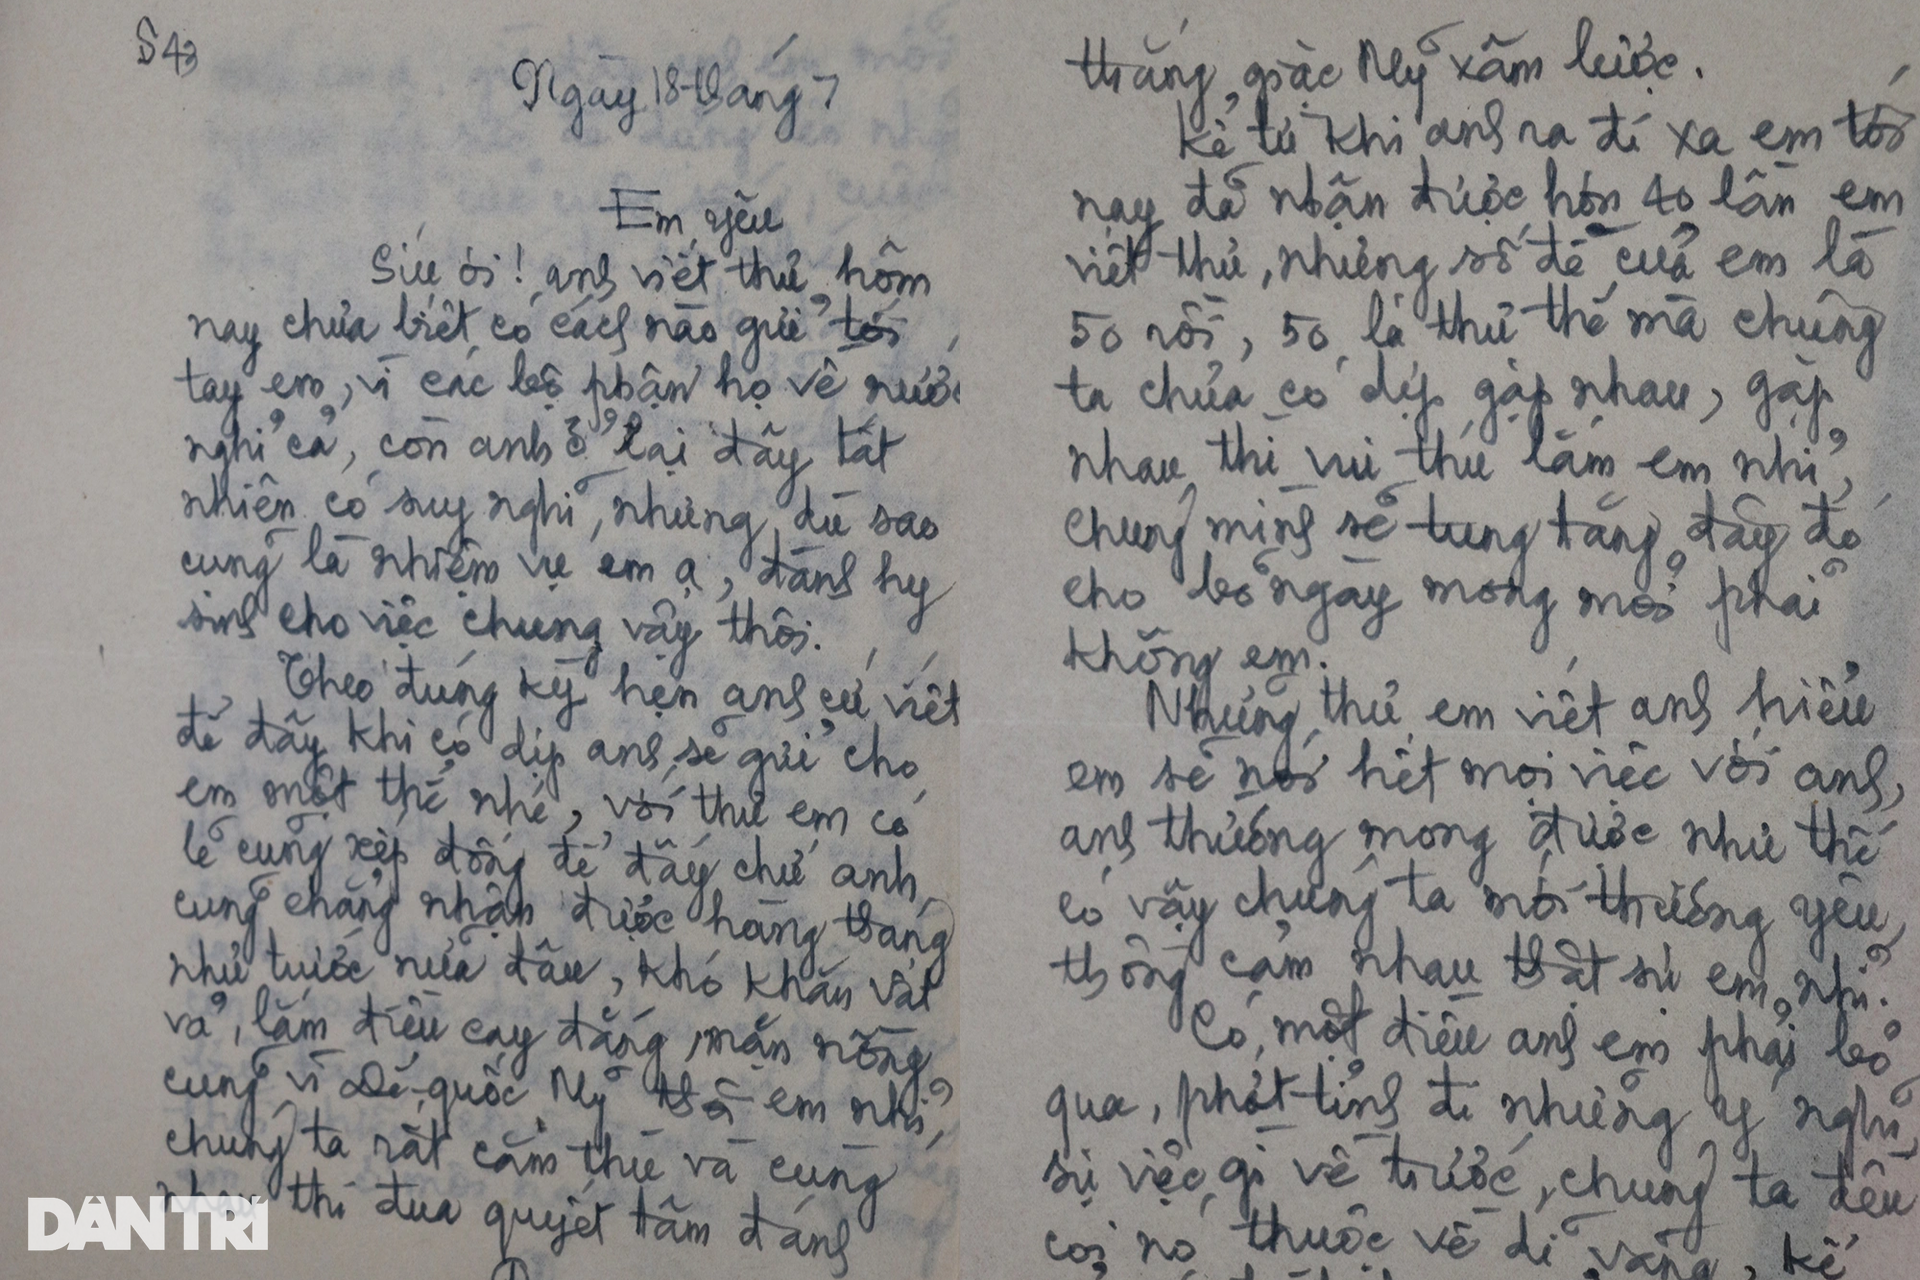 S43
Ngày 18 tháng 7
Em yêu
Sửu ơi! anh viết thư hôm
nay chưa biết có cách nào gửi tới
tay em, vì các bộ phận họ về nước
nghỉ cả, còn anh ở lại đây tất
nhiên có suy nghĩ, nhưng dù sao
cũng là nhiệm vụ em ạ, đành hy
sinh cho việc chung vậy thôi.
Theo đúng kỳ hẹn anh cứ viết
để đấy khi có dịp anh sẽ gửi cho
em một thể nhé, với thư em có
lẽ cũng xếp đống để đấy chứ anh
cũng chẳng nhận được hàng tháng
như trước nữa đâu, khó khăn vất
vả, lắm điều cay đắng, mặn nồng
cũng vì Đế-quốc Mỹ em nhỉ,
chúng ta rất căm thù và cùng
nhau thi đua quyết tâm đánh
thắng giặc Mỹ xâm lược.
Kể từ khi anh ra đi xa em tới
nay đã nhận được hơn 40 lần em
viết thư, nhưng số đề của em là
50 rồi, 50 lá thư thế mà chúng
ta chưa có dịp gặp nhau, gặp
nhau thì vui thú lắm em nhỉ,
chúng mình sẽ tung tăng đây đó
cho bõ ngày mong mỏi phải
không em.
Những thư em viết anh hiểu
em sẽ nói hết mọi việc với anh,
anh thường mong được như thế
có vậy chúng ta mới thương yêu,
thông cảm nhau thật sự em nhỉ.
Có một điều anh em phải bỏ
qua, phớt tỉnh đi những ý nghĩ,
sự việc gì về trước, chúng ta đều
coi nó thuộc về dĩ vãng, kể
DÂN TRÍ